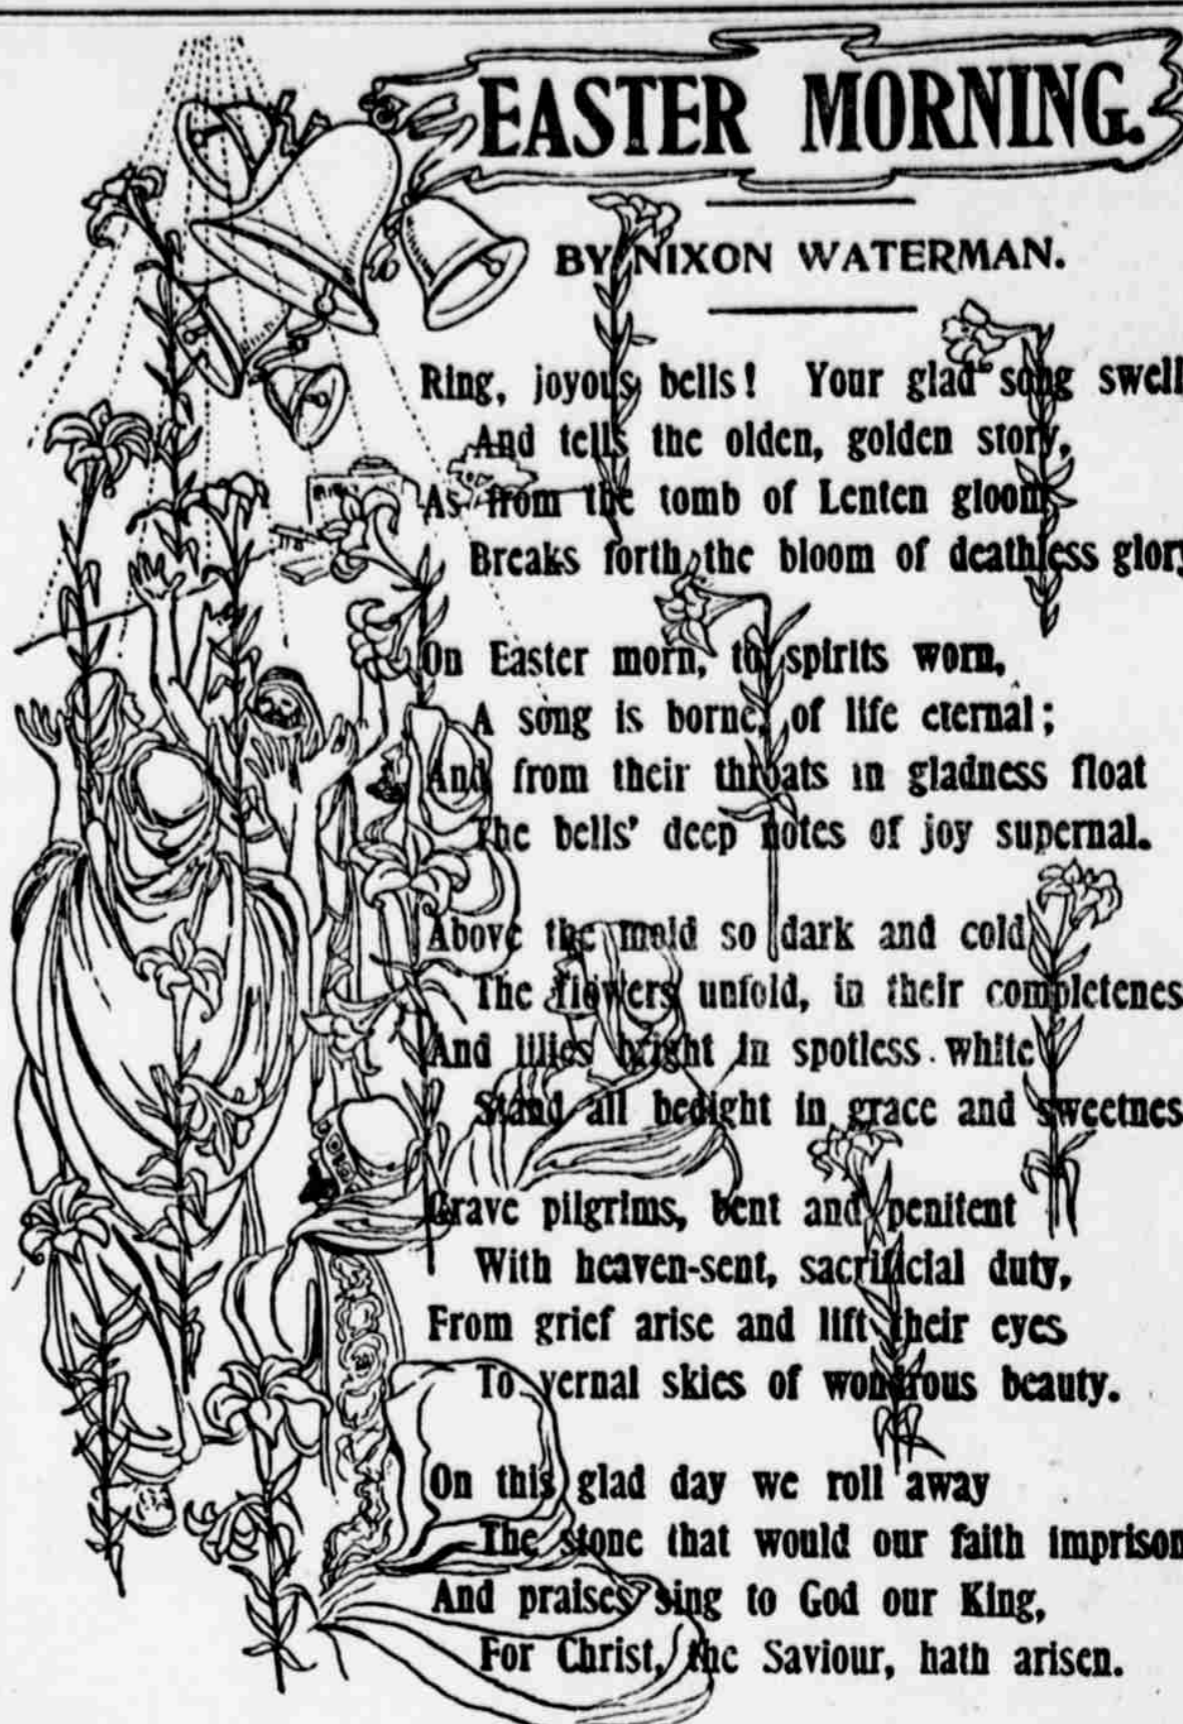 EASTER MORNING.
BY NIXON WATERMAN.
Ring, joyous bells! Your glad song swell
And tells the olden, golden story,
As from the tomb of Lenten gloom
Breaks forth the bloom of deathless glory
On Easter morn, to spirits worn,
A song is borne, of life eternal;
And from their throats in gladness float
The bells' deep notes of joy supernal.
Above the mold so dark and cold
The flowers unfold, in their completenes
And lilies bright in spotless white
Stand all bedight in grace and sweetnes
Grave pilgrims, bent and penitent
With heaven-sent, sacrificial duty,
From grief arise and lift their eyes
To vernal skies of wondrous beauty.
On this glad day we roll away
The stone that would our faith imprison
And praises sing to God our King,
For Christ, the Saviour, hath arisen.